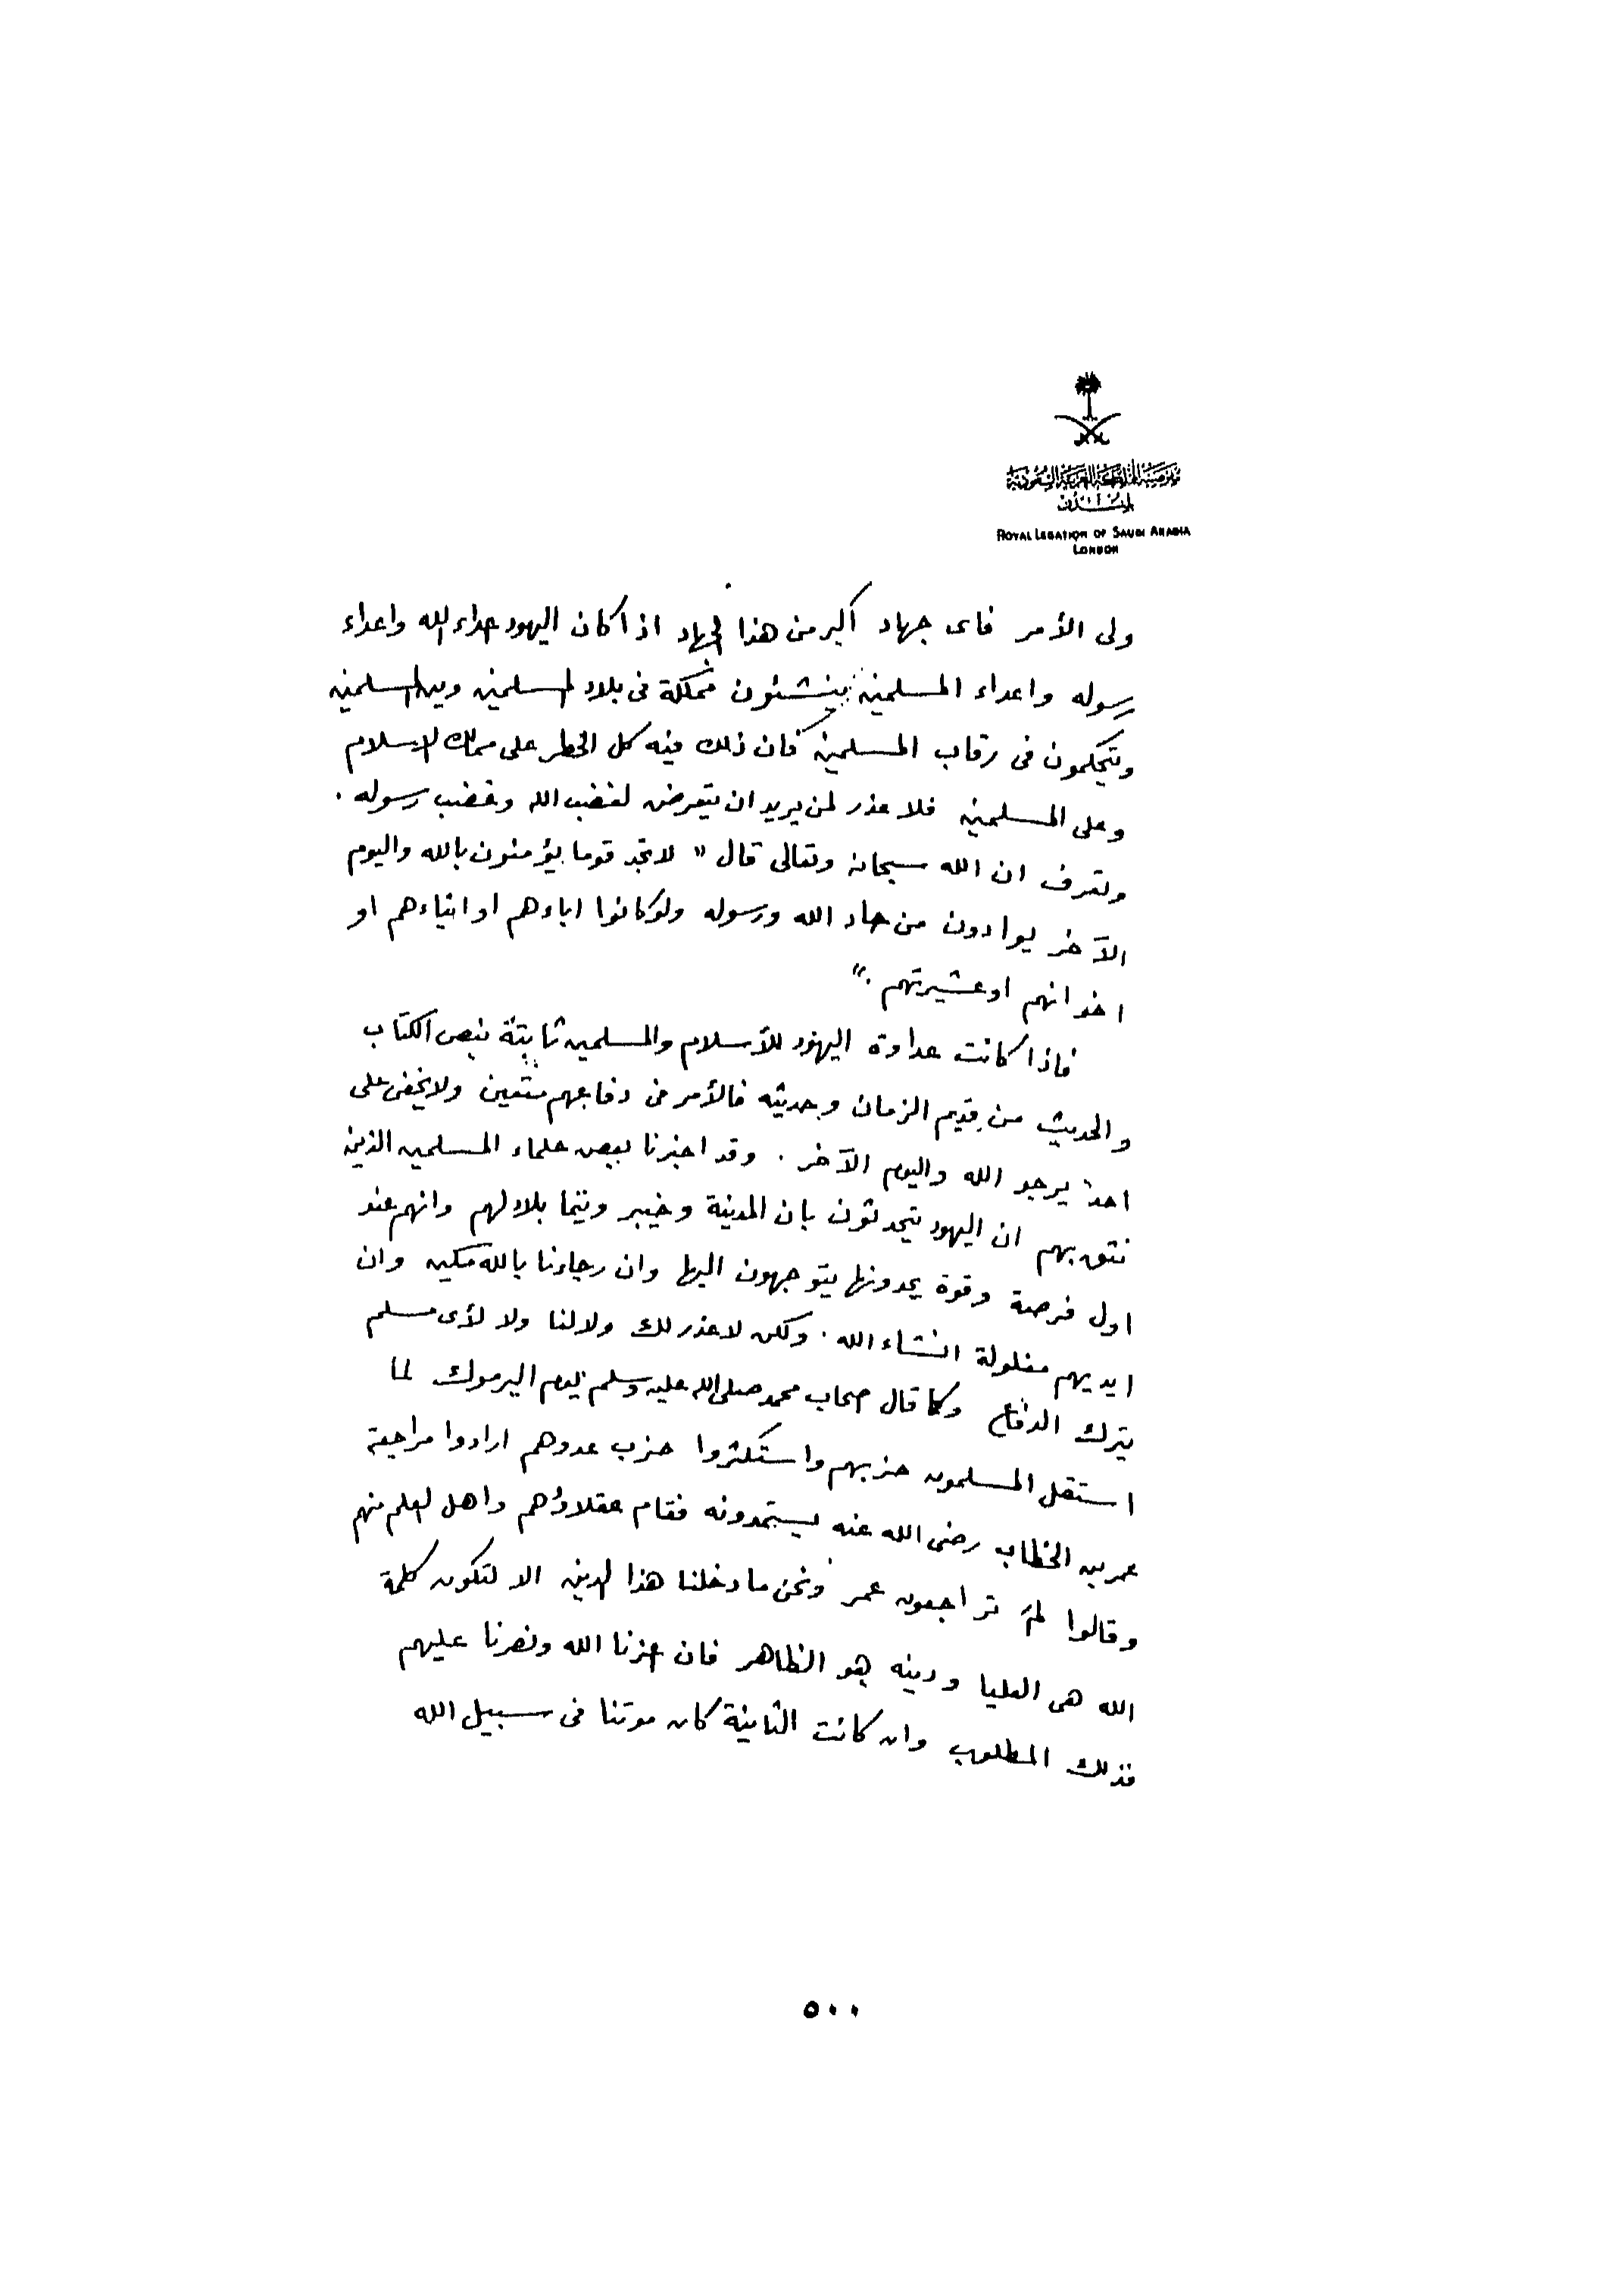 مفوضية المملكة العربية السعودية
بلندن
ROYAL LEGATION OF SAUDI ARABIA
LONDON
ولى الأمر فاى جهاد أكبر من هذا الجهاد اذا كان اليهود اعداء الله واعداء
رسوله واعداء المسلمين ينشئون مملكة فى بلاد المسلمين وبين المسلمين
ويتحكمون فى رقاب المسلمين فان ذلك فيه كل الخطر على ممالك الاسلام
وعلى المسلمين فلا عذر لمن يريد ان يتعرض لغضب الله وغضب رسوله .
وتعرف ان الله سبحانه وتعالى قال " لا تجد قوما يؤمنون بالله واليوم
الآخر يوادون من حاد الله ورسوله ولو كانوا اباءهم او ابناءهم او
اخوانهم او عشيرتهم . "
فاذا كانت عداوة اليهود للأسلام والمسلمين ثابتة بنص الكتاب
والحديث من قديم الزمان وحديثه فالأمر فى دفاعهم متعين ولا يخفى على
احد يرجو الله واليوم الآخر . وقد اخبرنا بعض علماء المسلمين الذين
نثق بهم ان اليهود يتحدثون بان المدينة وخيبر وتيما بلاد لهم وانهم عند
اول فرصة وقوة يجدونها يتوجهون اليها وان رجاءنا بالله مكين وان
ايديهم مغلولة انشاء الله . ولكن لا عذر لك ولا لنا ولا لأى مسلم
يترك الدفاع وكما قال اصحاب محمد صلى الله عليه وسلم يوم اليرموك لما
استقل المسلمون حزبهم واستكثروا حزب عدوهم ارادوا مراجعة
عمر بن الخطاب رضى الله عنه ليستمدونه فقام عقلاؤهم واهل العلم منهم
وقالوا لمَ تراجعون عمر ونحن ما دخلنا هذا الدين الا لتكون كلمة
الله هى العليا ودينه هو الظاهر فان اعزنا الله ونصرنا عليهم
فذلك المطلوب وان كانت الثانية كان موتنا فى سبيل الله
٥٠٠